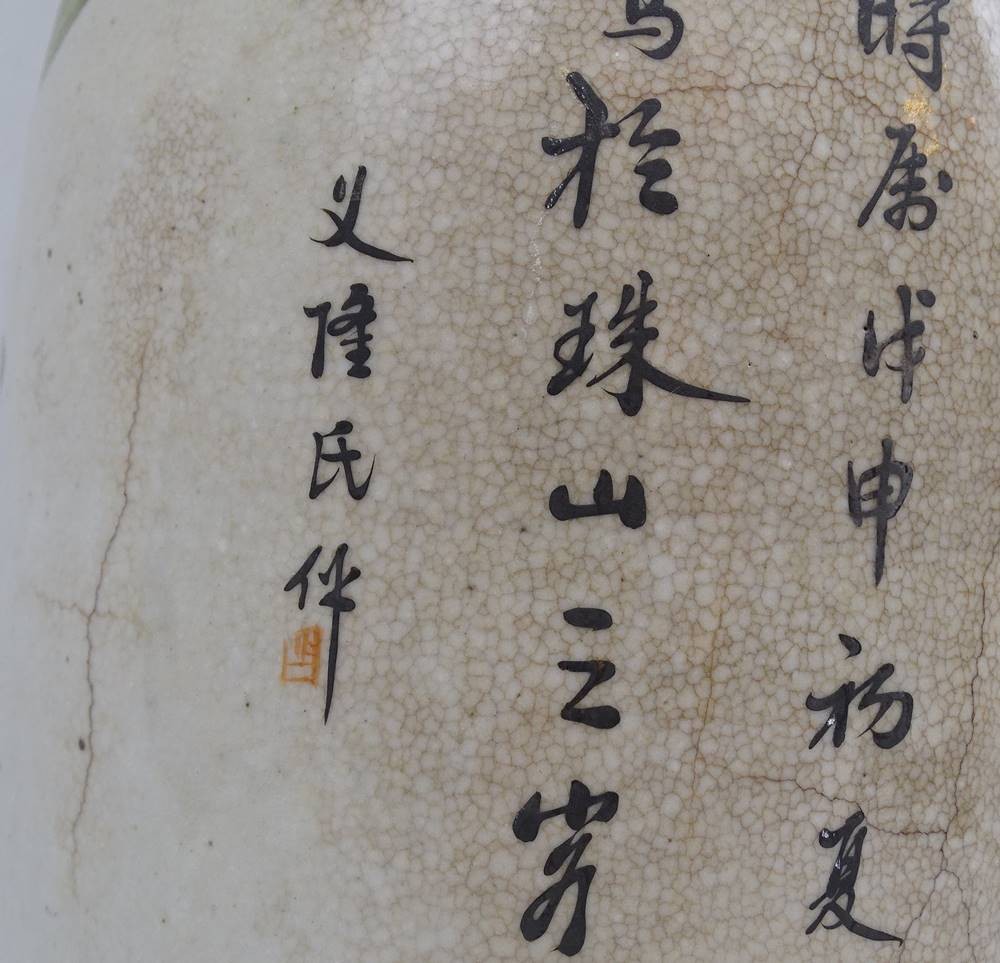 時属戊申初夏
写於珠山之
义隆氏作